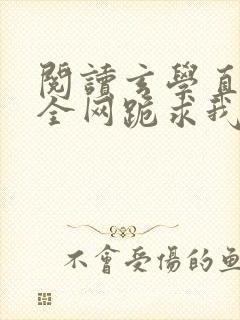 閱讀玄學直
全网跪求我
不會受傷的魚